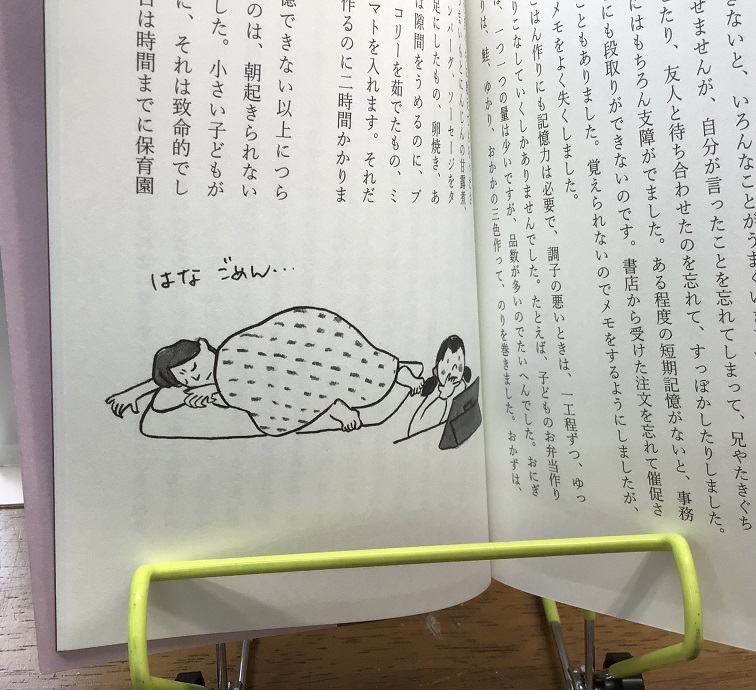 きないと、いろんなことがうまく
せませんが、自分が言ったことを忘れてしまって、兄やたきぐち
たり、友人と待ち合わせたのを忘れて、すっぽかしたりしました。
にはもちろん支障がでました。ある程度の短期記憶がないと、事務
にも段取りができないのです。書店から受けた注文を忘れて催促さ
こともありました。覚えられないのでメモをするようにしましたが、
メモをよく失くしました。
ごはん作りにも記憶力は必要で、調子の悪いときは、一工程ずつ、ゆっ
りこなしていくしかありませんでした。たとえば、子どものお弁当作り
は、一つ一つの量は少いですが、品数が多いのでたいへんでした。おにぎ
りは、鮭、ゆかり、おかかの三色作って、のりを巻きました。おかずは、
にんじんの甘露煮、
ンバーグ、ソーセージをタ
足にしたもの、卵焼き、あ
は隙間をうめるのに、ブ
コリーを茹でたもの、ミ
マトを入れます。それだ
作るのに二時間かかりま
憶できない以上につら
のは、朝起きられない
した。小さい子どもが
に、それは致命的でし
日は時間までに保育園
はな ごめん…